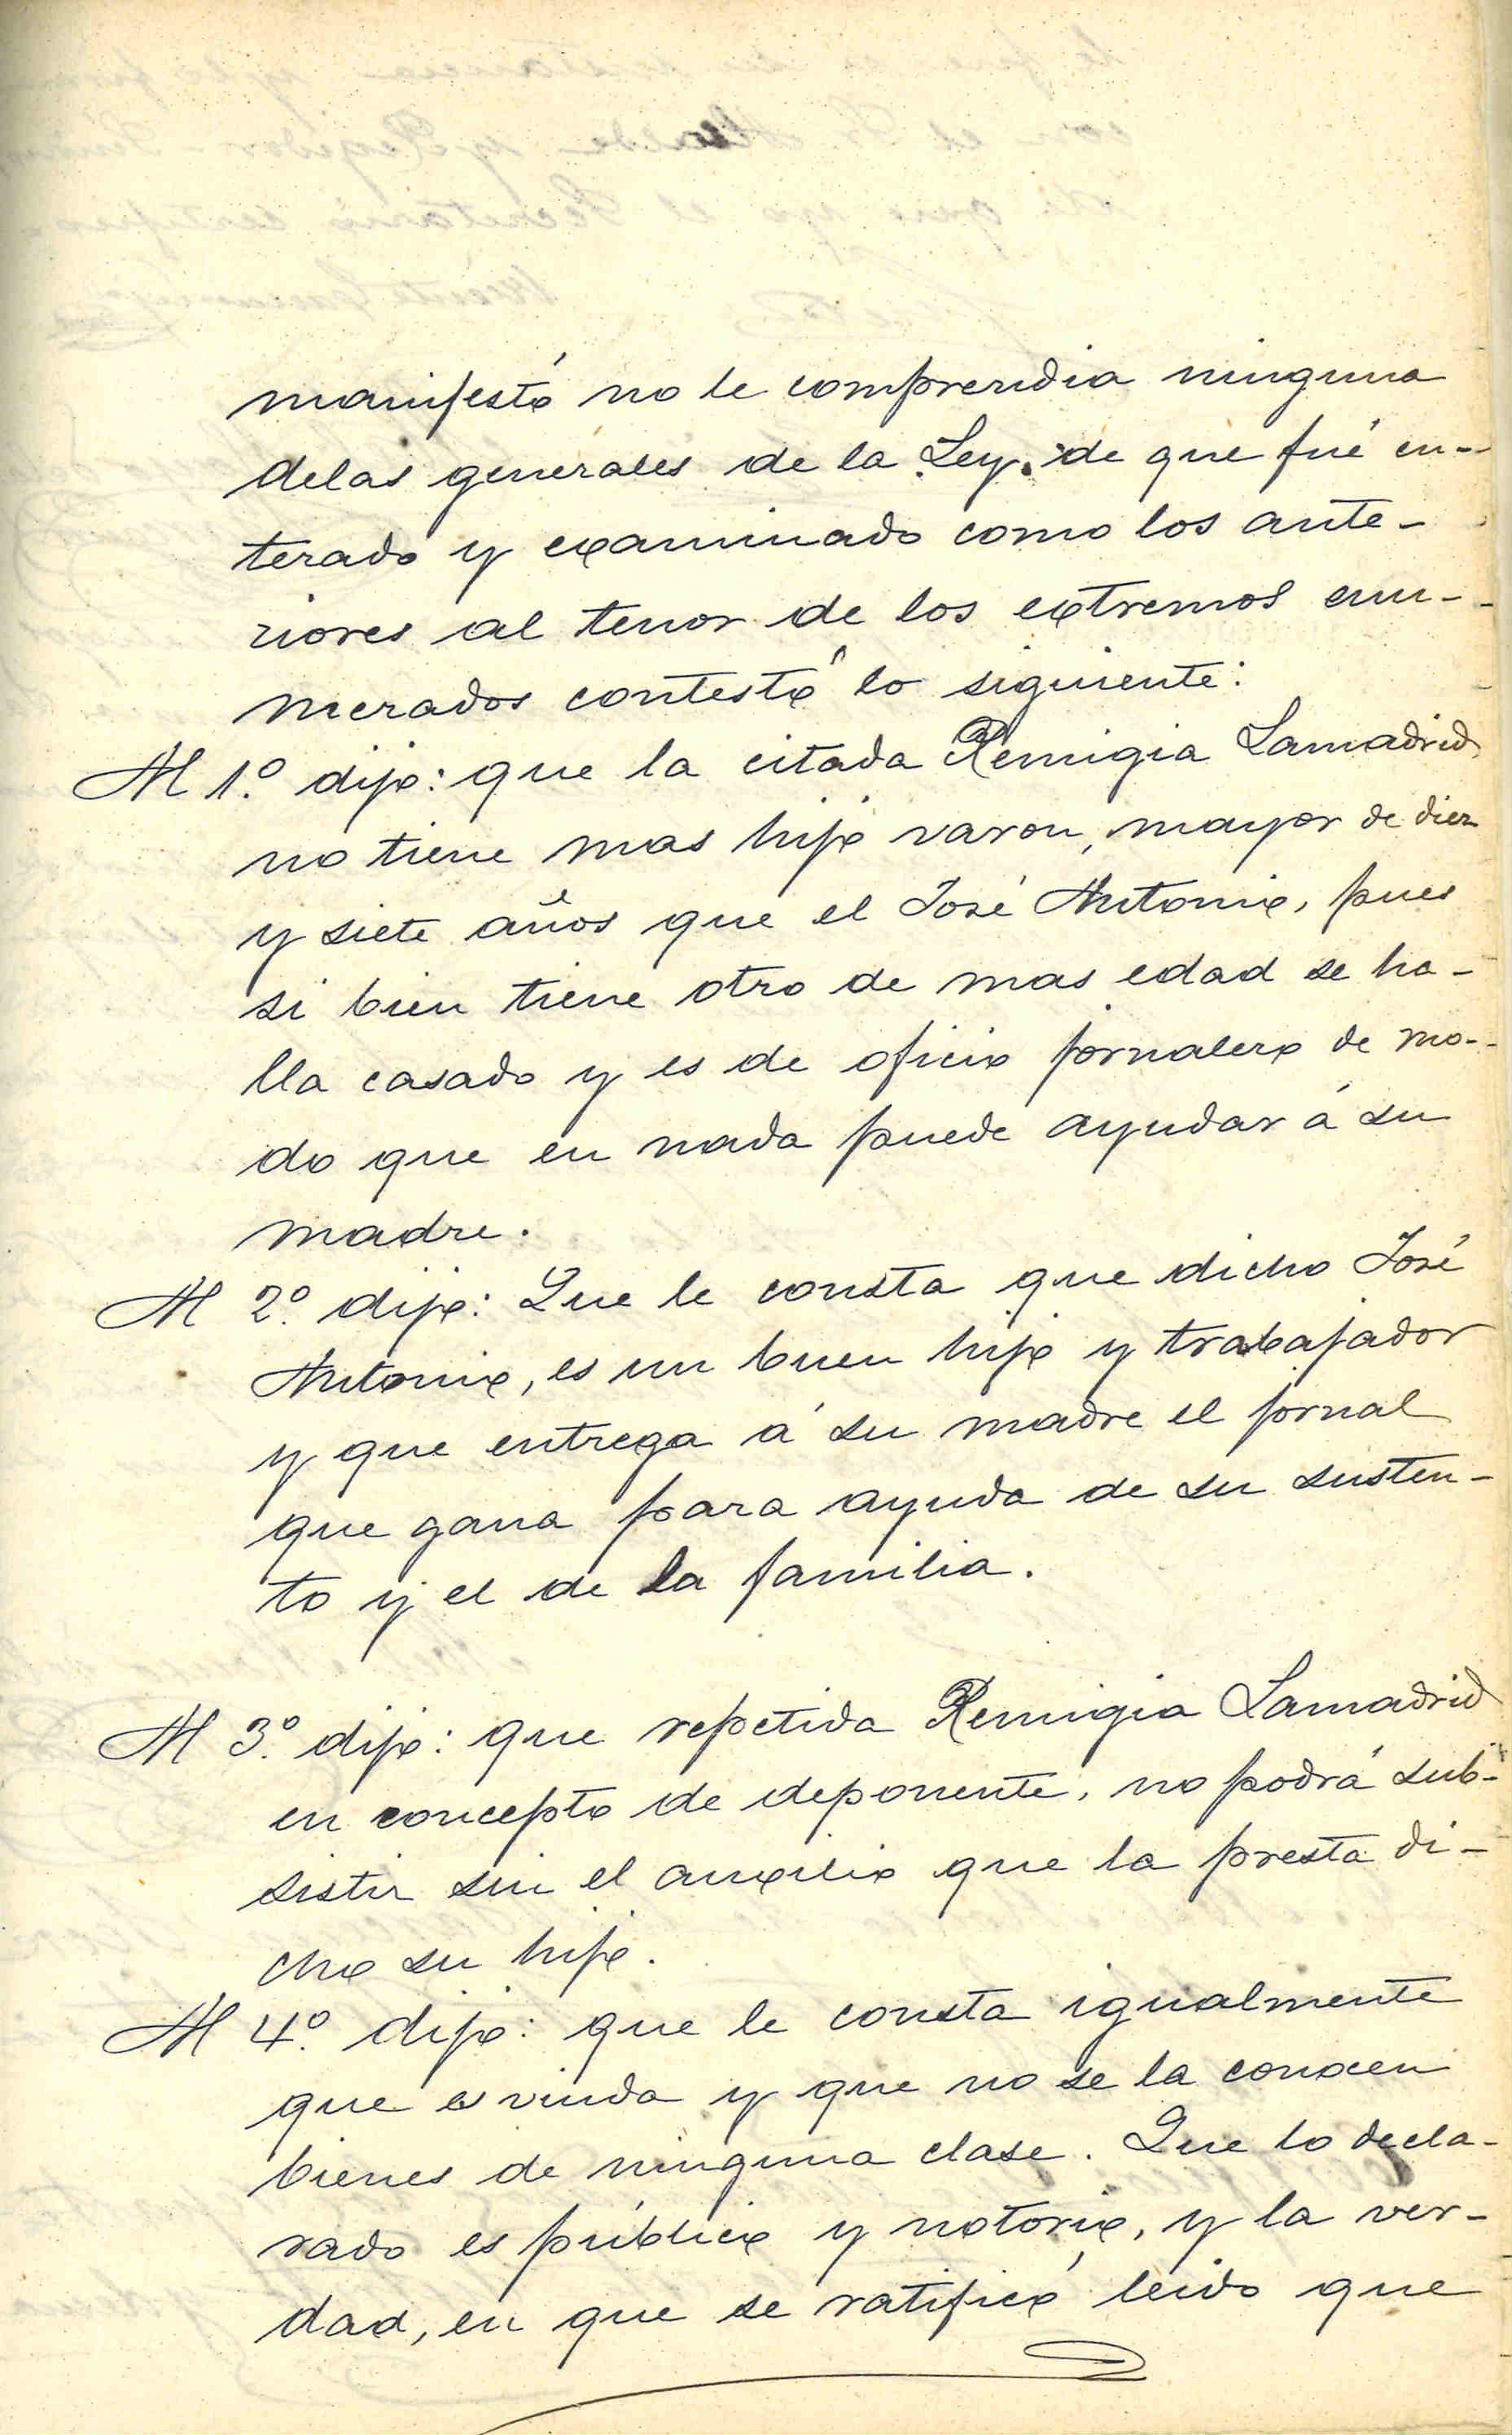 manifestó no le comprendia ninguna
delas generales de la Ley. de que fué en-
terado y examinado como los ante-
riores al tenor de los extremos enu-
merados contestó lo siguiente:
Al 1.º dijo: que la citada Remigia Lamadrid
no tiene mas hijo varon, mayor de diez
y siete años que el José Antonio, pues
si bien tiene otro de mas edad se ha-
lla casado y es de oficio jornalero de mo-
do que en nada puede ayudar á su
madre.
Al 2.º dijo: Que le consta que dicho José
Antonio, es un buen hijo y trabajador
y que entrega á su madre el jornal
que gana para ayuda de su susten-
to y el de la familia.
Al 3.º dijo: que repetida Remigia Lamadrid
en concepto de deponente, no podrá sub-
sistir sin el auxilio que la presta di-
cho su hijo.
Al 4.º dijo: que le consta igualmente
que es viuda y que no se la conocen
bienes de ninguna clase. Que lo decla-
rado es público y notorio, y la ver-
dad, en que se ratificó leido que